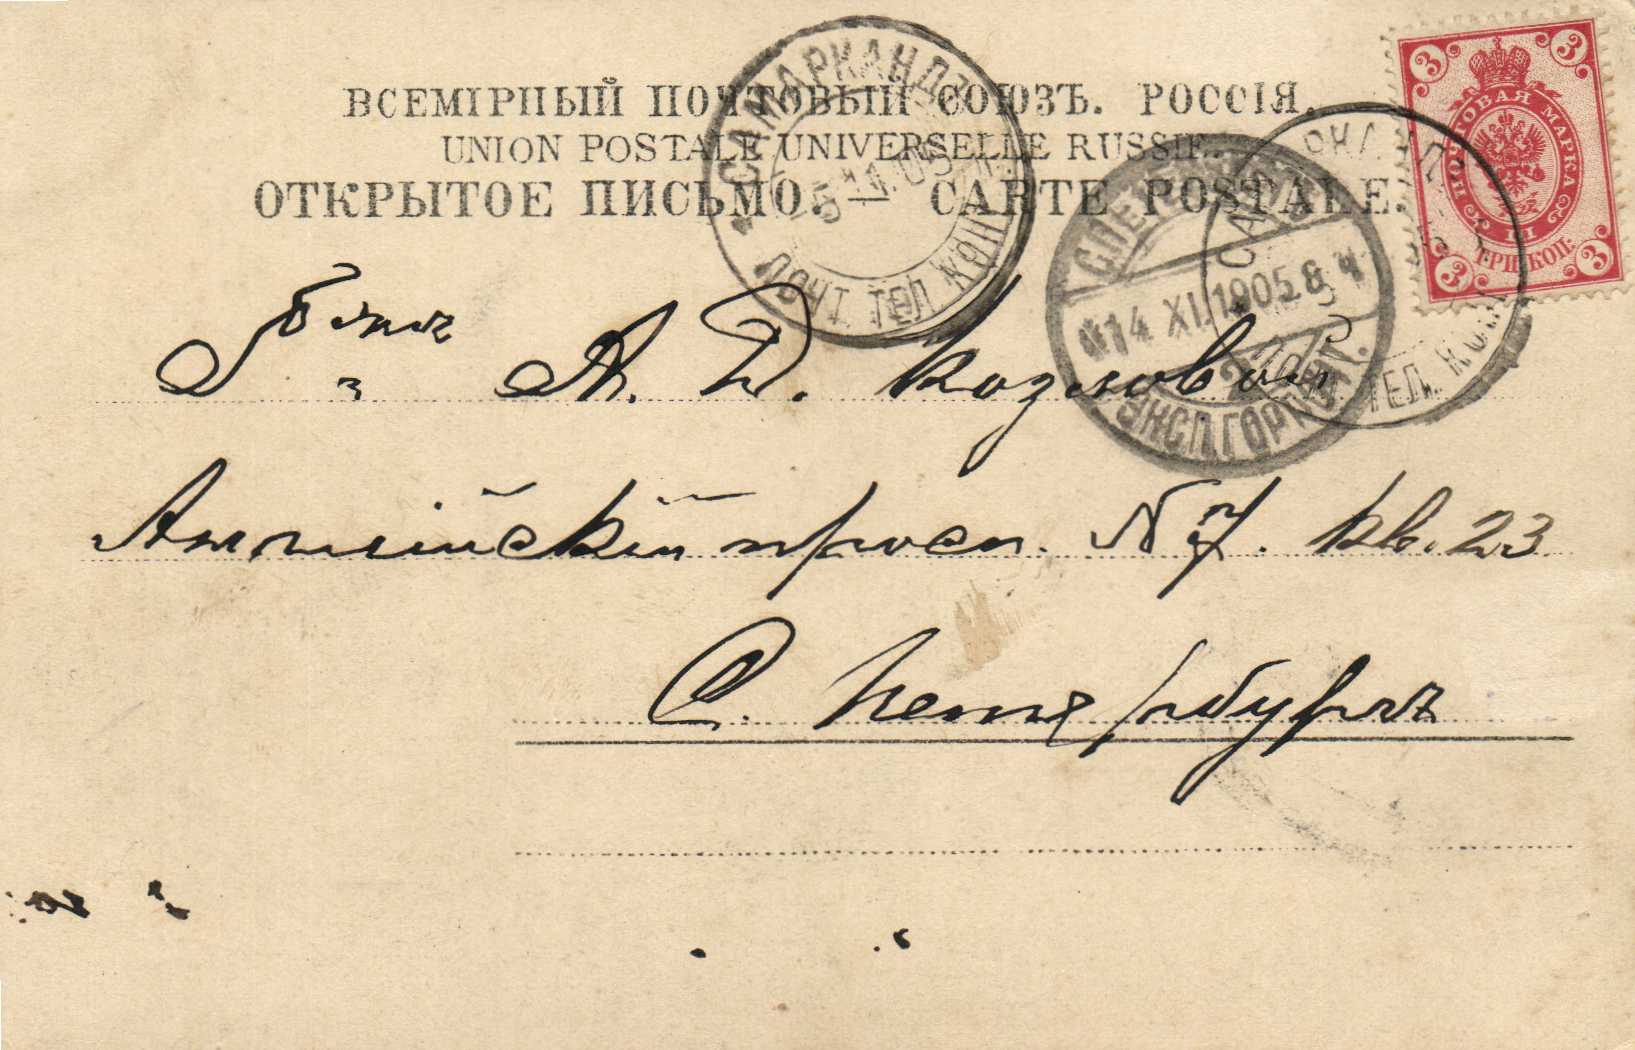 ВСЕМІРНЫЙ ПОЧТОВЫЙ СОЮЗЪ. РОССІЯ.
UNION POSTALE UNIVERSELLE RUSSIE.
ОТКРЫТОЕ ПИСЬМО. — CARTE POSTALE.
САМАРКАНДЪ
5 11 05
ПОЧТ. ТЕЛ. КОН.
14 XI 1905 8 Ч
2 ЭКСП. ГОР. ПОЧТ.
ТЕЛ. КОН.
3 3
ПОЧТОВАЯ МАРКА
ТРИ КОП.
3 3
А. Д. Козловой
Англійскій просп. № 7. кв. 23
С. Петербургъ